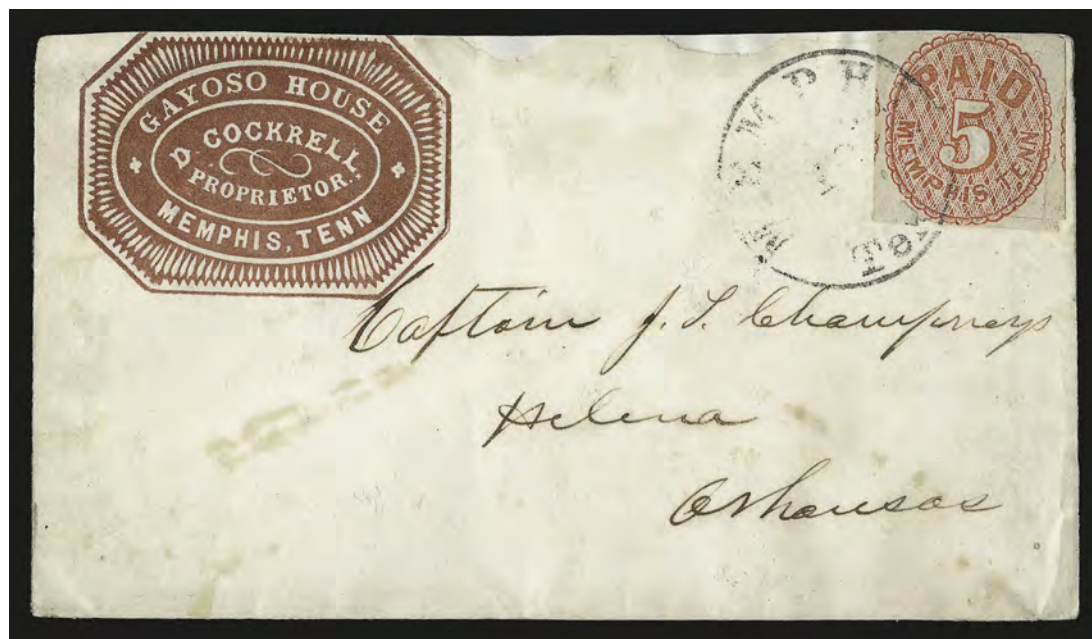 GAYOSO HOUSE
D. COCKRELL
PROPRIETOR.
MEMPHIS, TENN
MEMPH
Ten
PAID
5
MEMPHIS, TENN
Captain J. S. Champneys
Helena
Arkansas